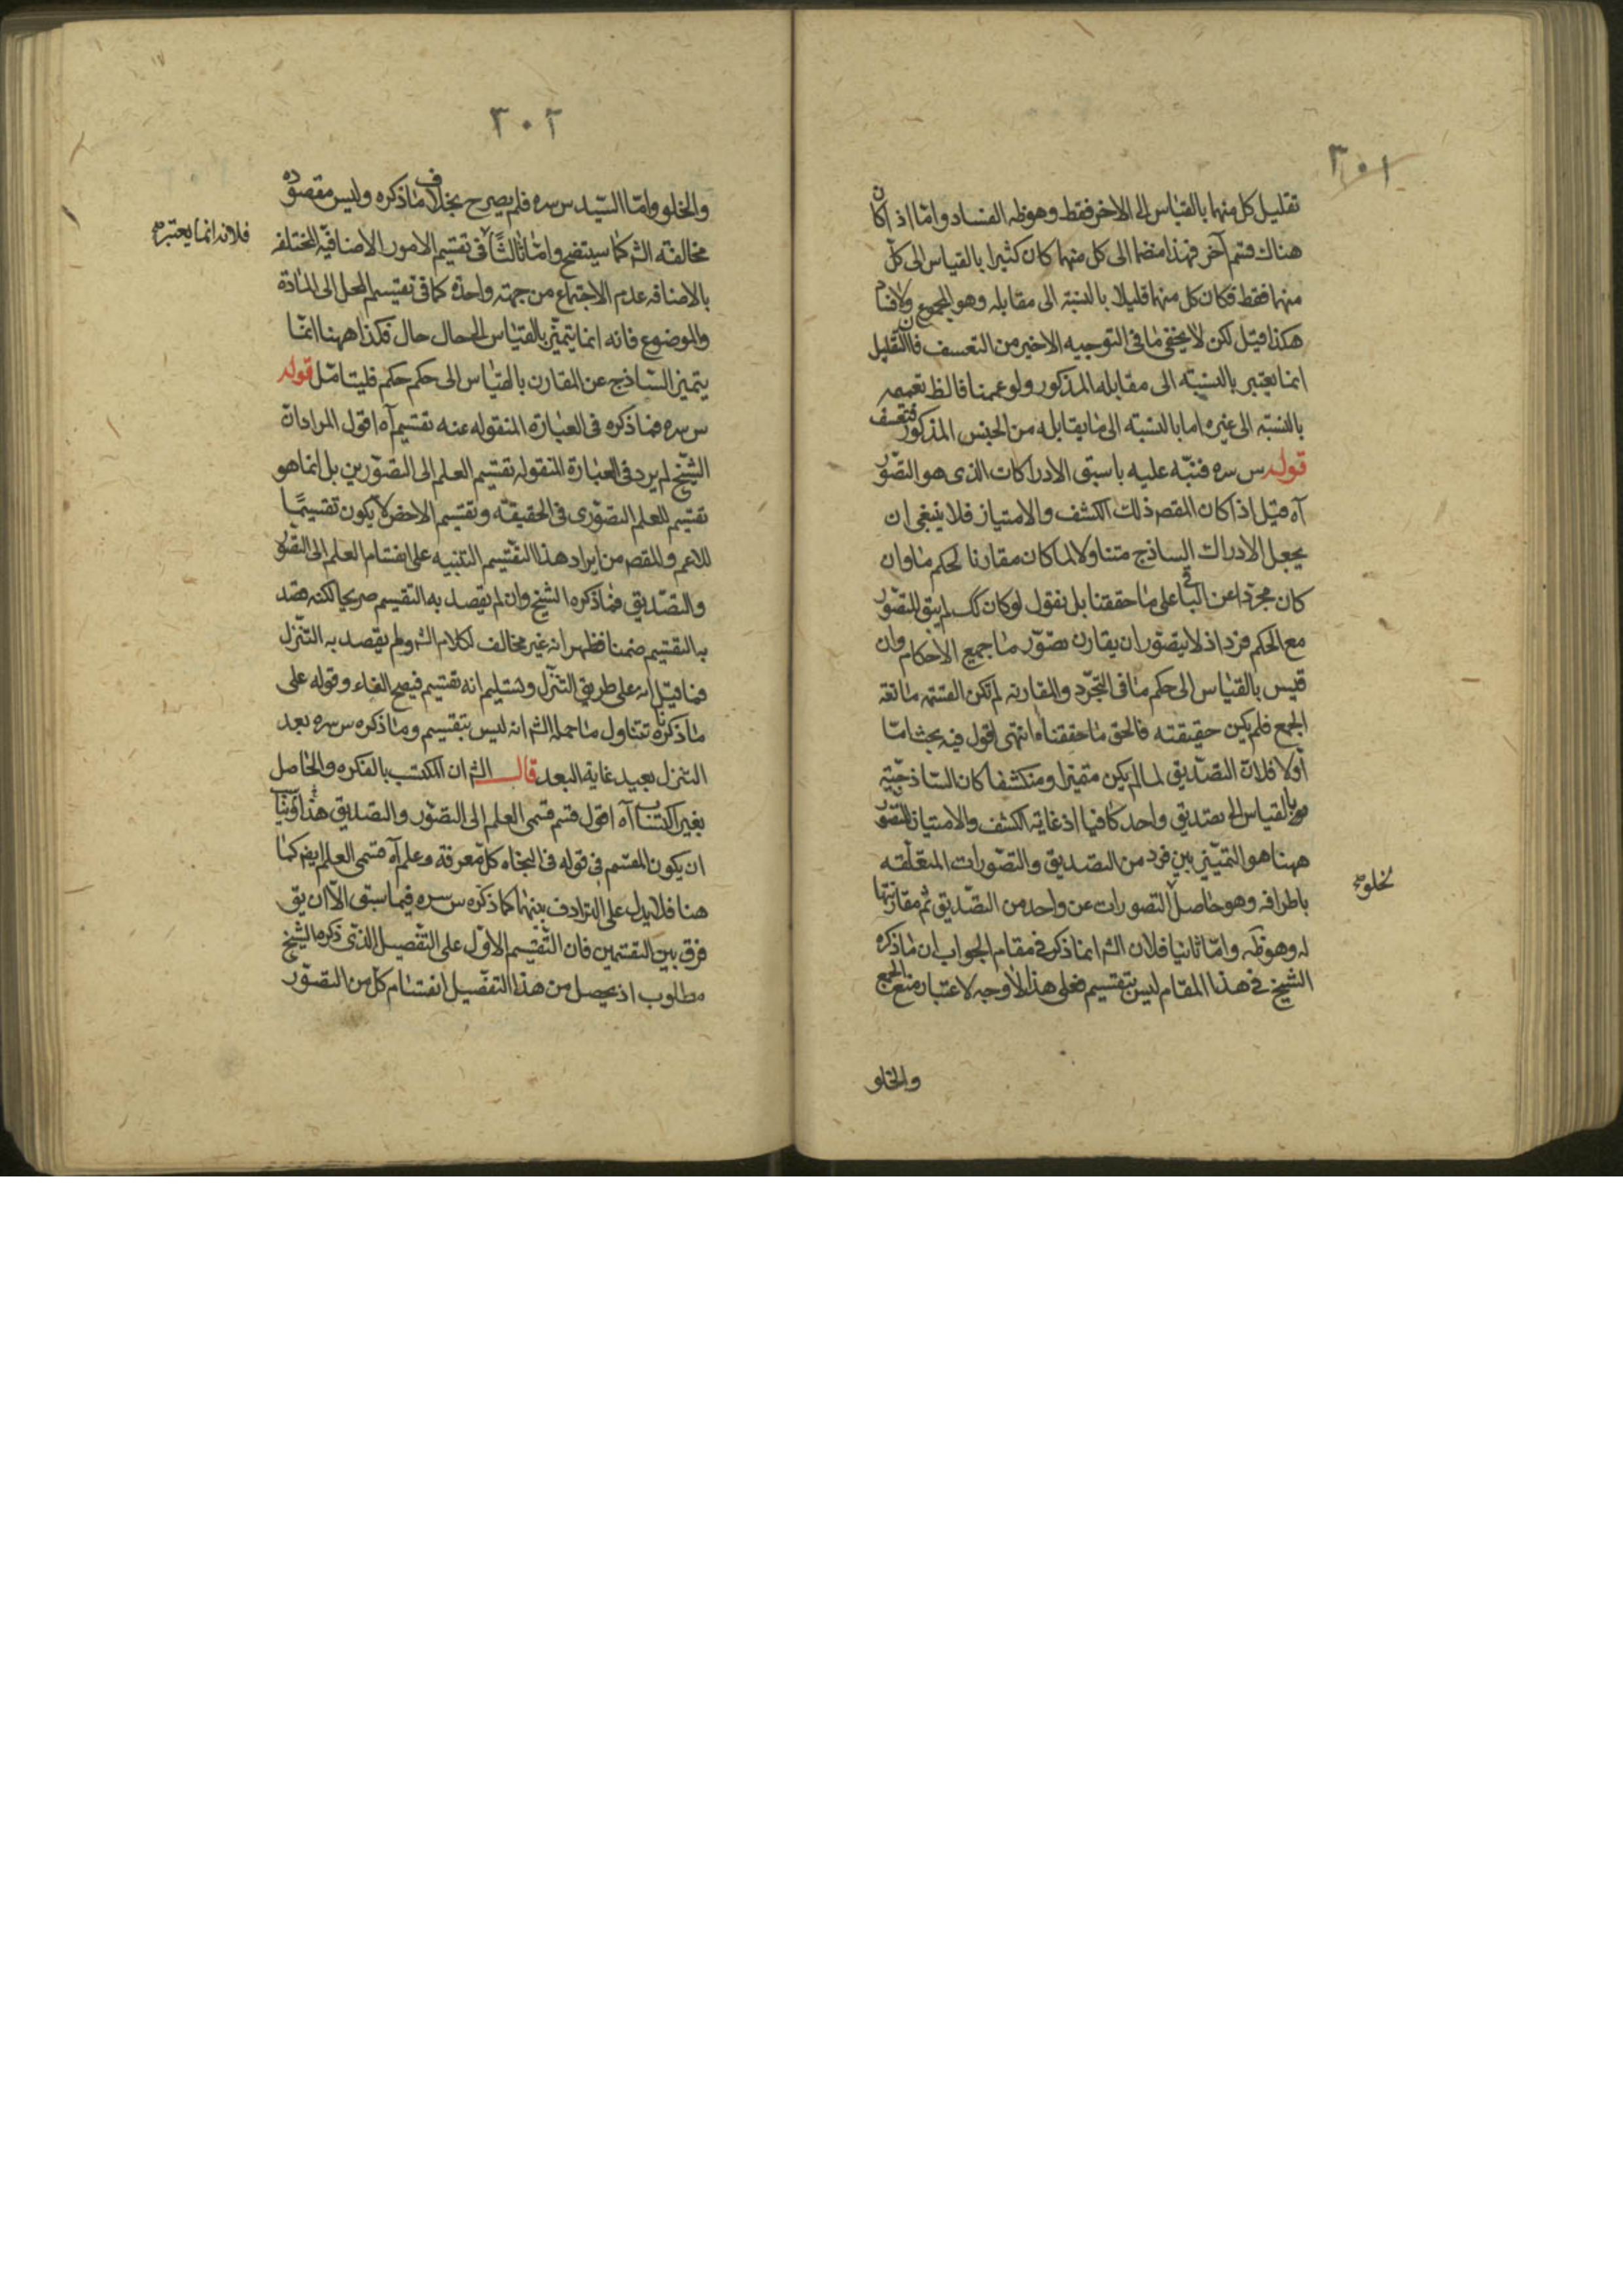 ٣٠١
تقليل كل منهما بالقياس الى الاخر فقط وهو ظ الفساد واما اذا كان
هناك قسم آخر فهذا منضما الى كل منهما كان كثيرا بالقياس الى كل
منهما فقط فكان كل منهما قليلا بالنسبة الى مقابله وهو المجموع ولا فساد
هكذا قيل لكن لا يخفى ما فى التوجيه الاخير من التعسف فان التقليل
انما يعتبر بالنسبة الى مقابله المذكور ولو عممنا فالظ تعميمه
بالنسبة الى غيره اما بالنسبة الى ما يقابله من الجنس المذكور فتعسف
قوله س سره فنبّه عليه باسبق الادراكات الذى هو التصوّر
آه قيل اذا كان المقصم ذلك الكشف والامتياز فلا ينبغى ان
يجعل الادراك الساذج متناولا لما كان مقارنا لحكم ما وان
كان مجردا عن الباقى على ما حققنا بل نقول لو كان كك لم يبق للتصوّر
مع الحكم فرد اذ لا يتصور ان يقارن تصوّر ما جميع الاحكام وان
قيس بالقياس الى حكم ما فى التجرّد والمقارنة لم تكن القسمة مانعة
الجمع فلم يكن حقيقته فالحق ما حققناه انتهى اقول فيه بحث امّا
أوّلا فلان التصديق لما لم يكن متميزا ومنكشفا كان الساذجية
بالقياس الى تصديق واحد كافيا اذ غاية الكشف والامتياز للتصوّر
ههنا هو التميّز بين فرد من التصديق والتصورات المتعلّقه
باطرافه وهو حاصل التصورات عن واحد من التصديق ثم مقارنتها
لخلو صح
له وهو ظ وامّا ثانيا فلان الش انما ذكر فى مقام الجواب ان ما ذكره
الشيخ فى هذا المقام ليس بتقسيم فعلى هذا لا وجه لاعتبار منع الجمع
والخلو
٣٠٢
والخلو وامّا السيّد س سره فلم يصرح بخلاف ما ذكره وليس مقصوده
مخالفة الش كما سيتضح وامّا ثالثا فى تقسيم الامور الاضافيّة المختلفه
فلانه انما يعتبر صح
بالاضافه عدم الاجتماع من جهة واحدة كما فى تقسيم المحل الى المادة
والموضوع فانه انما يتميّز بالقياس الى حال حال فكذا ههنا انما
يتميز الساذج عن المقارن بالقياس الى حكم حكم فليتامّل قوله
س سره فما ذكره فى العبارة المنقوله عنه تقسيم آه اقول المراد ان
الشيخ لم يرد فى العبارة المنقوله تقسيم العلم الى التصوّرين بل انما هو
تقسيم للعلم التصوّرى فى الحقيقة وتقسيم الاخص لا يكون تقسيمًا
للاعم والمقصم من ايراد هذا التقسيم التنبيه على انقسام العلم الى التصوّر
والتصديق فما ذكره الشيخ وان لم يقصد به التقسيم صريحا لكنه قصد
به التقسيم ضمنا فظهر انه غير مخالف لكلام الش ولم يقصد به التنزل
فما قيل انه على طريق التنزّل وتسليم انه تقسيم فيصح الفاء وقوله على
ما ذكرنا تتناول ما حمله الش انه ليس بتقسيم وما ذكره س سره بعد
التنزل بعيد غاية البعد قال الش ان المكتسب بالفكره والحاصل
بغير اكتساب آه اقول قسم قسمى العلم الى التصوّر والتصديق هذا
ان يكون المقسم فى قوله فى النجاة كل معرفة وعلم آه قسمى العلم ايضم كما
هنا فلا يدل على الترادف بينهما كما ذكره س سره فيما سبق الا ان يق
فرق بين التقسمين فان التّقسيم الاوّل على التّفصيل الذى ذكره الشيخ
مطلوب اذ يحصل من هذا التفصّيل انقسام كل من التصوّر